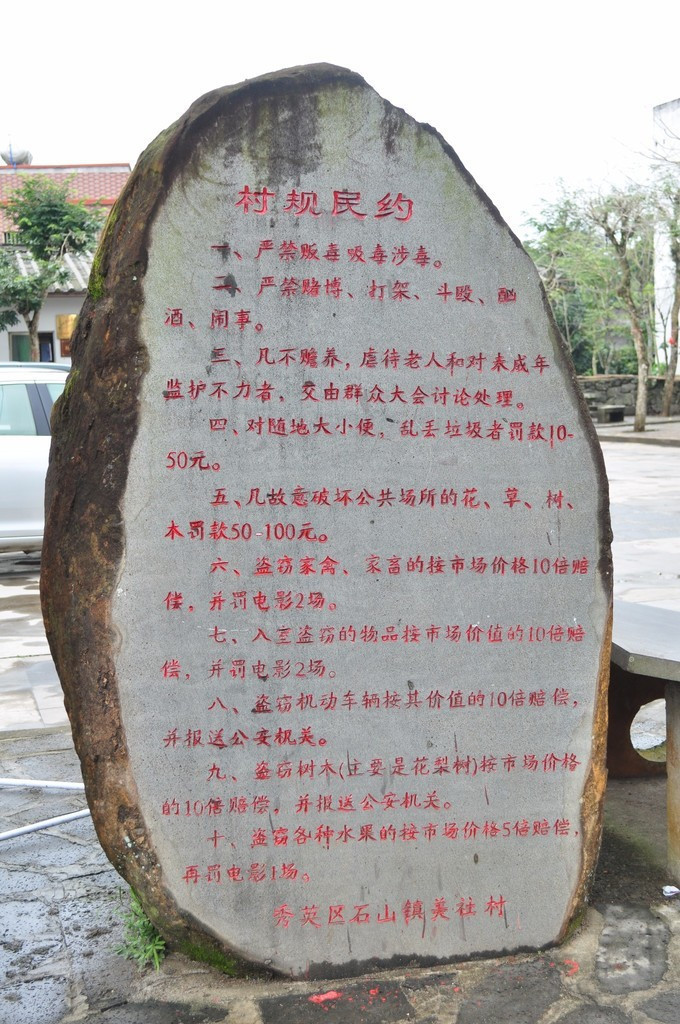 村规民约
一、严禁贩毒吸毒涉毒。
二、严禁赌博、打架、斗殴、酗
酒、闹事。
三、凡不赡养，虐待老人和对未成年
监护不力者，交由群众大会讨论处理。
四、对随地大小便，乱丢垃圾者罚款10-
50元。
五、凡故意破坏公共场所的花、草、树、
木罚款50-100元。
六、盗窃家禽、家畜的按市场价格10倍赔
偿，并罚电影2场。
七、入室盗窃的物品按市场价值的10倍赔
偿，并罚电影2场。
八、盗窃机动车辆按其价值的10倍赔偿，
并报送公安机关。
九、盗窃树木(主要是花梨树)按市场价格
的10倍赔偿，并报送公安机关。
十、盗窃各种水果的按市场价格5倍赔偿，
再罚电影1场。
秀英区石山镇美社村